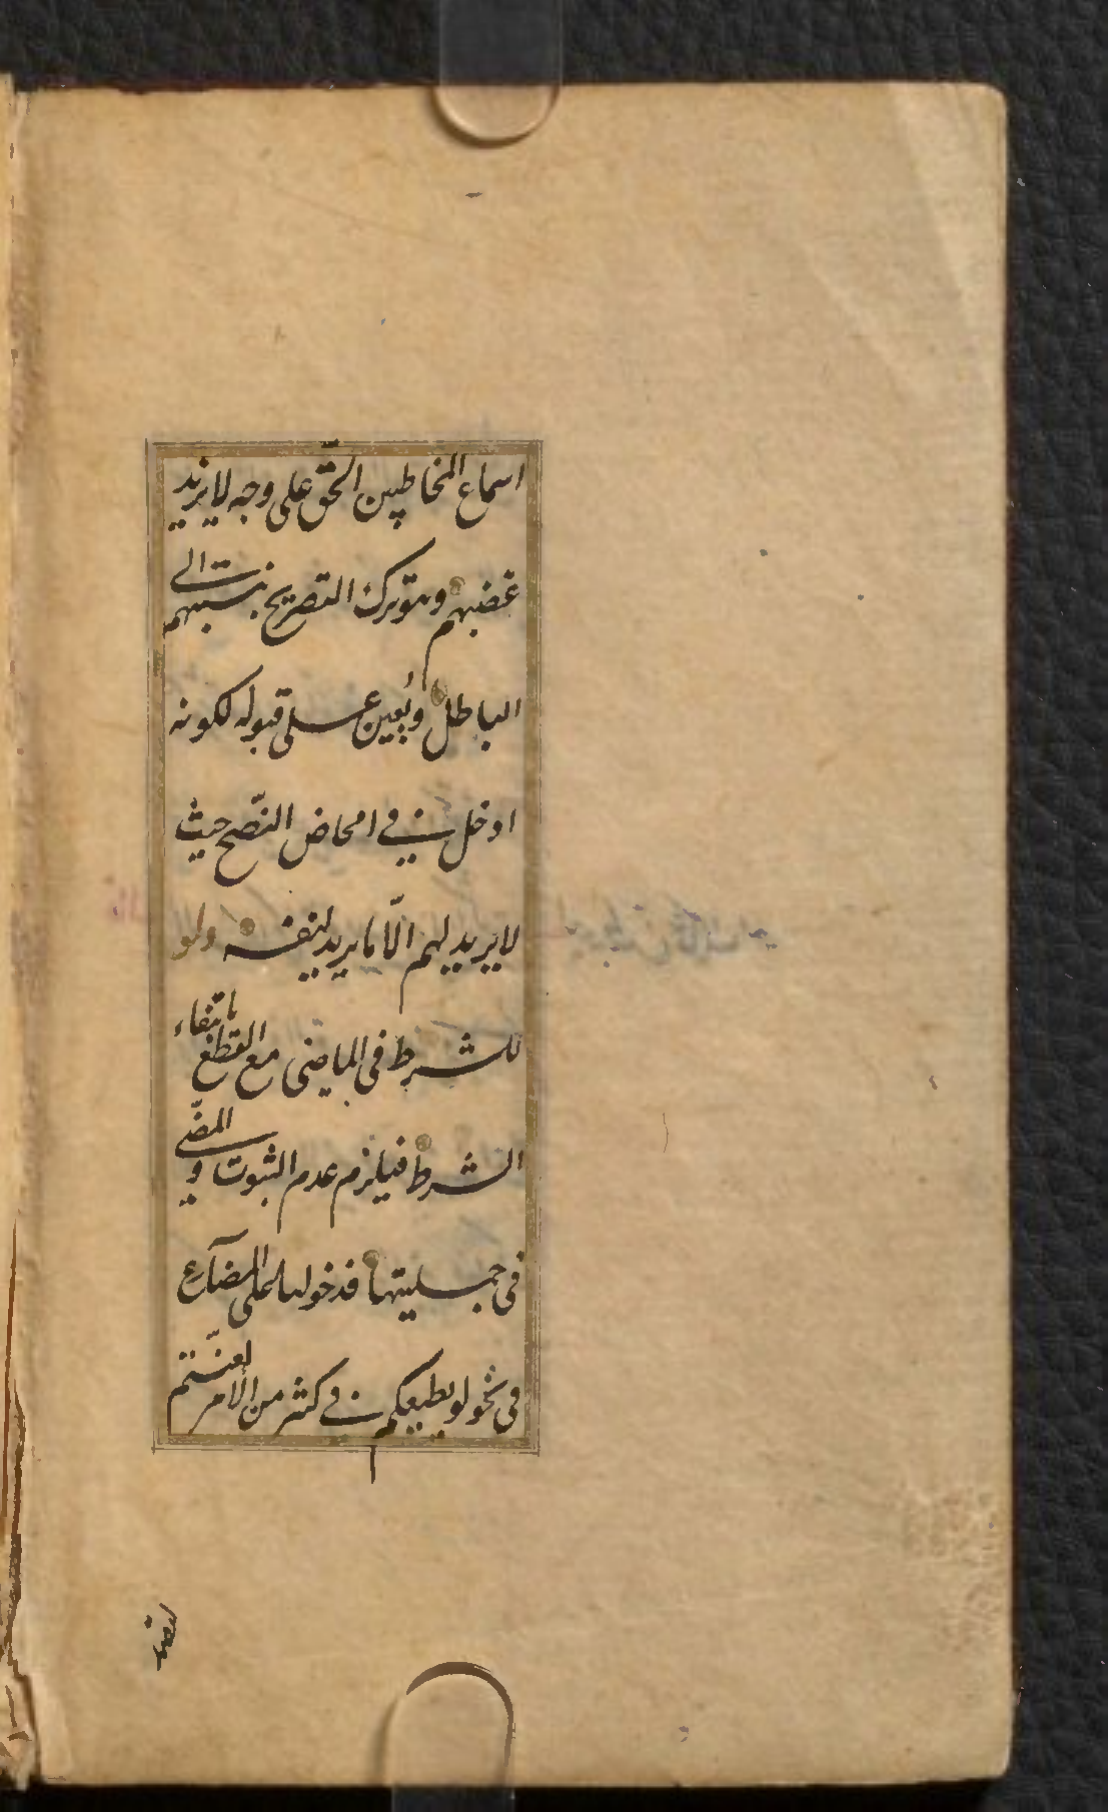 اسماع المخاطبين الحّق على وجه لا يزيد
غضبهم وهو ترك التصريح بنسبتهم الى
الباطل ويُعين على قبوله لكونه
ادخل في امحاض النّصح حيث
لا يريد لهم الّا ما يريد لنفسه ولو
للشرط فى الماضى مع القطع بانتفاء
الشرط فيلزم عدم الثبوت و المضّى
فى جملتيها فدخولها على المضارع
فى نحو لو يطيعكم في كثير من الامر لعنتّم
لقصد